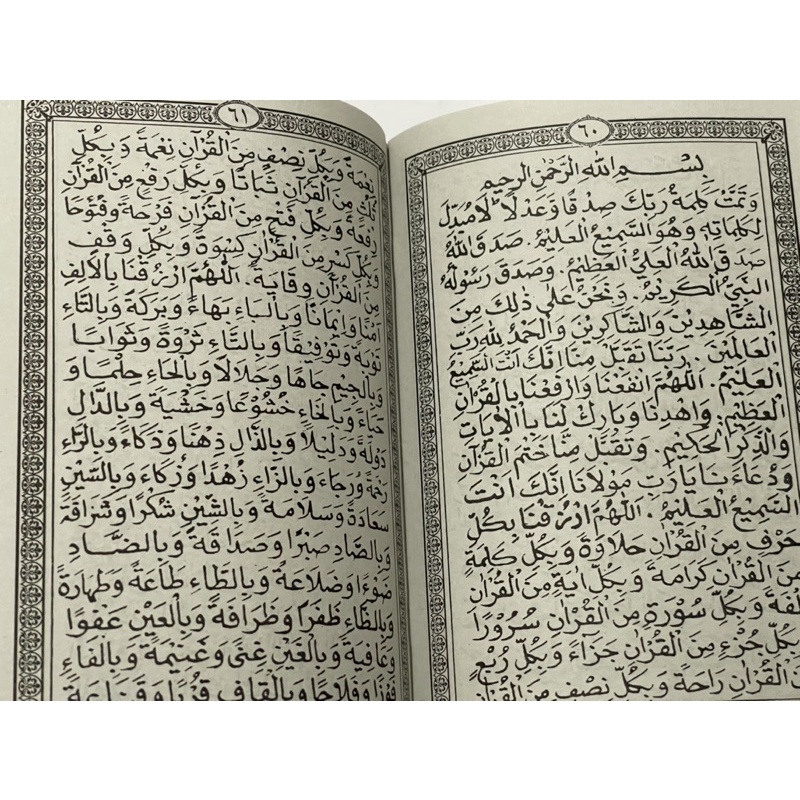 ٦٠
بِسْمِ اللهِ الرَّحْمٰنِ الرَّحِيْمِ
وَتَمَّتْ كَلِمَةُ رَبِّكَ صِدْقًا وَعَدْلًا لَا مُبَدِّلَ
لِكَلِمَاتِهِ وَهُوَ السَّمِيْعُ الْعَلِيْمُ. صَدَقَ اللهُ
صَدَقَ اللهُ الْعَلِيُّ الْعَظِيْمُ. وَصَدَقَ رَسُوْلُهُ
النَّبِيُّ الْكَرِيْمُ. وَنَحْنُ عَلَى ذٰلِكَ مِنَ
الشَّاهِدِيْنَ وَالشَّاكِرِيْنَ وَالْحَمْدُ لِلهِ رَبِّ
الْعَالَمِيْنَ. رَبَّنَا تَقَبَّلْ مِنَّا إِنَّكَ أَنْتَ السَّمِيْعُ
الْعَلِيْمُ. اَللّٰهُمَّ انْفَعْنَا وَارْفَعْنَا بِالْقُرْاٰنِ
الْعَظِيْمِ. وَاهْدِنَا وَبَارِكْ لَنَا بِالْاٰيَاتِ
وَالذِّكْرِ الْحَكِيْمِ. وَتَقَبَّلْ مِنَّا خَتْمَ الْقُرْاٰنِ
وَدُعَاءَنَا يَارَبِّ مَوْلَانَا إِنَّكَ أَنْتَ
السَّمِيْعُ الْعَلِيْمُ. اَللّٰهُمَّ ارْزُقْنَا بِكُلِّ
حَرْفٍ مِنَ الْقُرْاٰنِ حَلَاوَةً وَبِكُلِّ كَلِمَةٍ
مِنَ الْقُرْاٰنِ كَرَامَةً وَبِكُلِّ اٰيَةٍ مِنَ الْقُرْاٰنِ
وَبِكُلِّ سُوْرَةٍ مِنَ الْقُرْاٰنِ سُرُوْرًا
وَبِكُلِّ جُزْءٍ مِنَ الْقُرْاٰنِ جَزَاءً وَبِكُلِّ رُبْعٍ
مِنَ الْقُرْاٰنِ رَاحَةً وَبِكُلِّ نِصْفٍ مِنَ الْقُرْاٰنِ
٦١
نِعْمَةً وَبِكُلِّ نِصْفٍ مِنَ الْقُرْاٰنِ نِعْمَةً وَبِكُلِّ
ثُلُثٍ مِنَ الْقُرْاٰنِ ثَبَاتًا وَبِكُلِّ رَفْعٍ مِنَ الْقُرْاٰنِ
رِفْعَةً وَبِكُلِّ فَتْحٍ مِنَ الْقُرْاٰنِ فَرْحَةً وَفُتُوْحًا
وَبِكُلِّ كَسْرٍ مِنَ الْقُرْاٰنِ كِسْوَةً وَبِكُلِّ وَقْفٍ
مِنَ الْقُرْاٰنِ وِقَايَةً. اَللّٰهُمَّ ارْزُقْنَا بِالْاَلِفِ
اَمْنًا وَاِيْمَانًا وَبِالْبَاءِ بَهَاءً وَبَرَكَةً وَبِالتَّاءِ
تَوْبَةً وَتَوْفِيْقًا وَبِالثَّاءِ ثَرْوَةً وَثَوَابًا
وَبِالْجِيْمِ جَاهًا وَجَلَالًا وَبِالْحَاءِ حِلْمًا وَ
حَيَاءً وَبِالْخَاءِ خُشُوْعًا وَخَشْيَةً وَبِالدَّالِ
دَوْلَةً وَدَلِيْلًا وَبِالذَّالِ ذِهْنًا وَذَكَاءً وَبِالرَّاءِ
رَحْمَةً وَرَجَاءً وَبِالزَّاءِ زُهْدًا وَزَكَاءً وَبِالسِّيْنِ
سَعَادَةً وَسَلَامَةً وَبِالشِّيْنِ شُكْرًا وَشَرَافَةً
وَبِالصَّادِ صَبْرًا وَصَدَاقَةً وَبِالضَّادِ
ضَوْءًا وَضَلَاعَةً وَبِالطَّاءِ طَاعَةً وَطَهَارَةً
وَبِالظَّاءِ ظَفَرًا وَظَرَافَةً وَبِالْعَيْنِ عَفْوًا
وَعَافِيَةً وَبِالْغَيْنِ غِنًى وَغَنِيْمَةً وَبِالْفَاءِ
فَوْزًا وَفَلَاحًا وَبِالْقَافِ قُرْبًا وَقَنَاعَةً